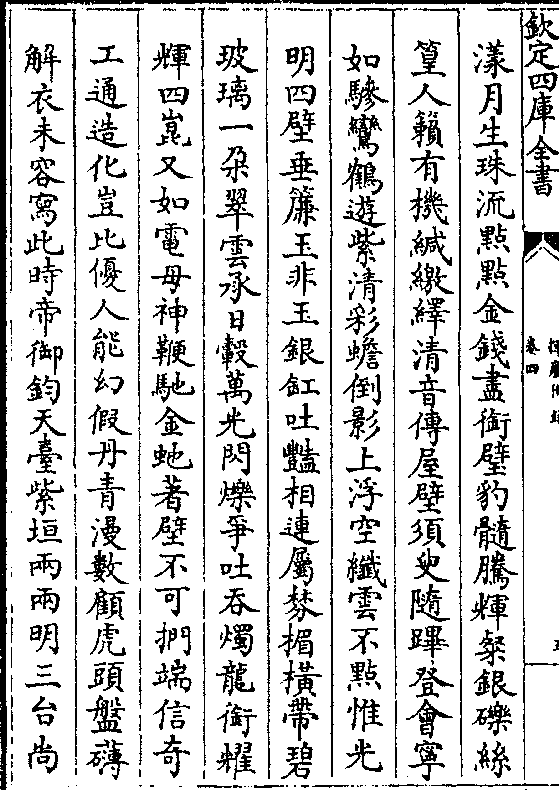 欽定四庫全書
卷四
漾月生珠流點點金錢盡銜璧豹髓騰輝粲銀礫絲
篁人籟有機緘繳繹清音傳屋壁須臾隨蹕登會寧
如驂鸞鶴遊紫清彩蟾倒影上浮空纖雲不點惟光
明四壁垂簾玉非玉銀缸吐豔相連屬棼楣橫帶碧
玻璃一朶翠雲承日轂萬光閃爍爭吐吞燭龍銜耀
輝四崑又如電母神鞭馳金虵著壁不可捫端信奇
工通造化豈比優人能幻假丹青漫數顧虎頭盤礴
解衣未容寫此時帝御鈞天臺紫垣兩兩明三台尚